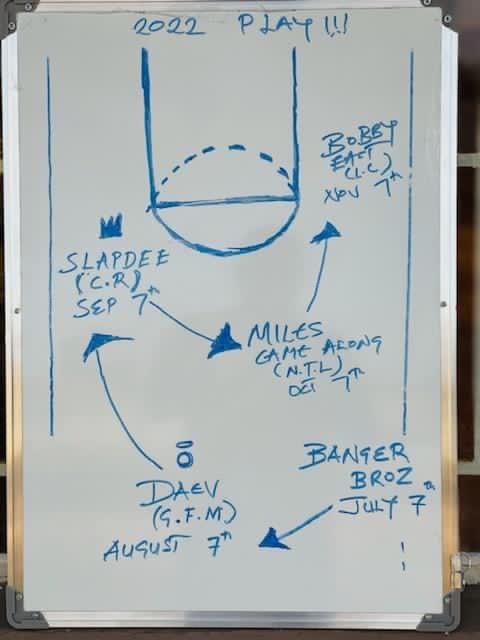 2022 PLAY!!!
BOBBY
EAST
(L.C)
NOV 7th
SLAPDEE
(C.R)
SEP 7th
MILES
CAME ALONG
(N.T.L)
OCT 7th
BANGER
BROZ
JULY 7th
DAEV
(G.F.M)
AUGUST 7th